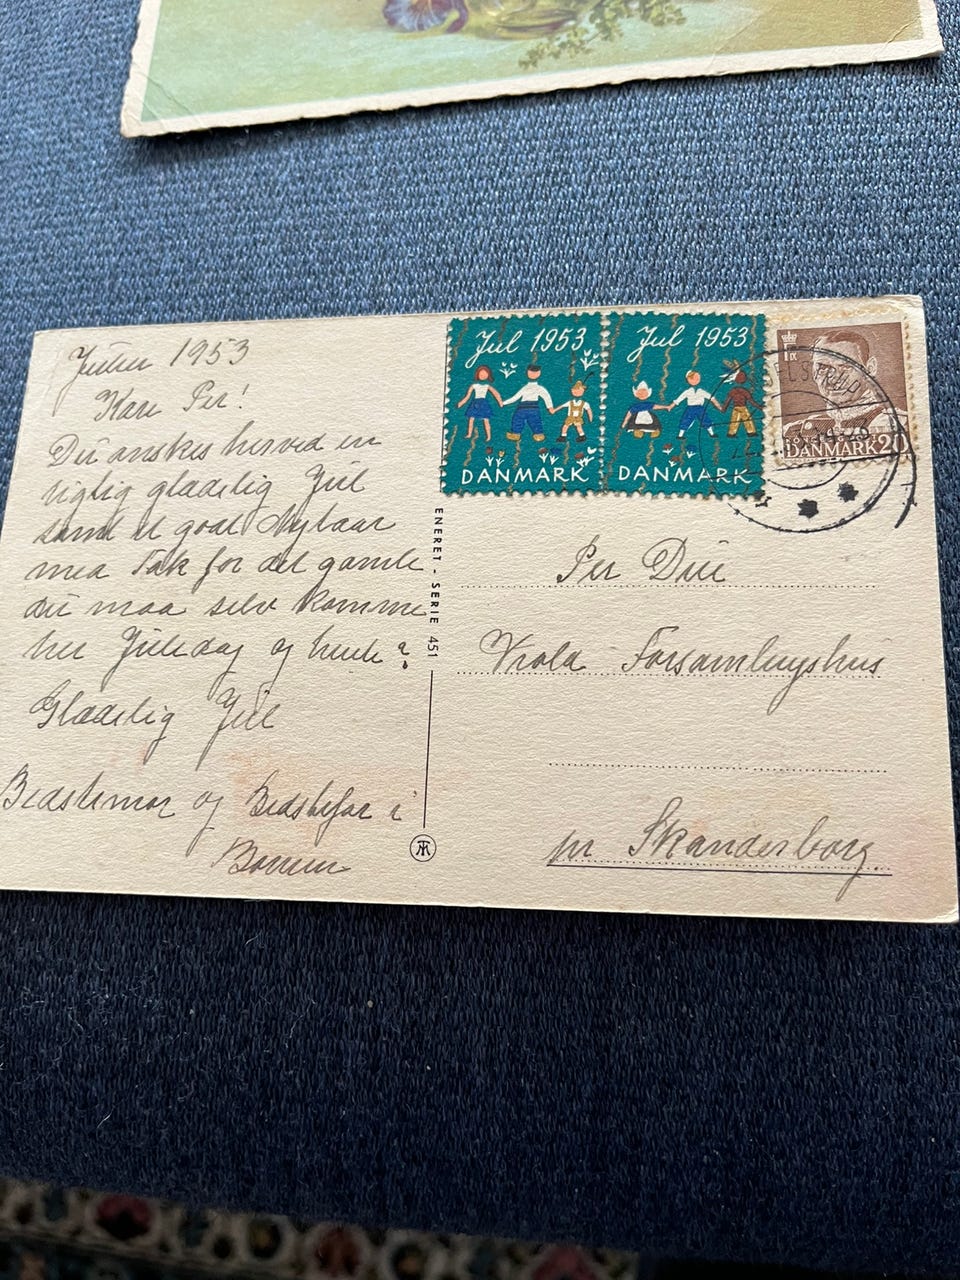 Julen 1953
Kære Per!
Du ønskes herved en
rigtig glædelig Jul
samt et godt Nytaar
med Tak for det gamle
du maa selv komme
her Juledag og hente?
Glædelig Jul
Bedstemor og Bedstefar i
ENERET - SERIE 451
Jul 1953
DANMARK
Jul 1953
DANMARK
DANMARK 20
Per Due
Vrold Forsamlingshus
pr Skanderborg